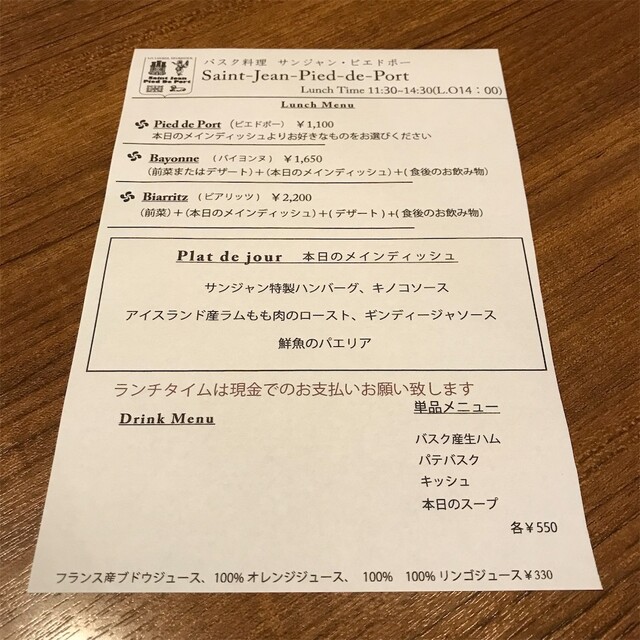 Saint Jean
Pied De Port
バスク料理 サンジャン・ピエドポー
Saint-Jean-Pied-de-Port
Lunch Time 11:30~14:30(L.O14：00)
Lunch Menu
Pied de Port （ピエドポー） ￥1,100
本日のメインディッシュよりお好きなものをお選びください
Bayonne （バイヨンヌ） ￥1,650
（前菜またはデザート）＋（本日のメインディッシュ）＋（食後のお飲み物）
Biarritz （ビアリッツ） ￥2,200
（前菜）＋（本日のメインディッシュ）＋（デザート）＋（食後のお飲み物）
Plat de jour 本日のメインディッシュ
サンジャン特製ハンバーグ、キノコソース
アイスランド産ラムもも肉のロースト、ギンディージャソース
鮮魚のパエリア
ランチタイムは現金でのお支払いお願い致します
Drink Menu
単品メニュー
バスク産生ハム
パテバスク
キッシュ
本日のスープ
各￥550
フランス産ブドウジュース、100% オレンジジュース、 100% 100% リンゴジュース￥330